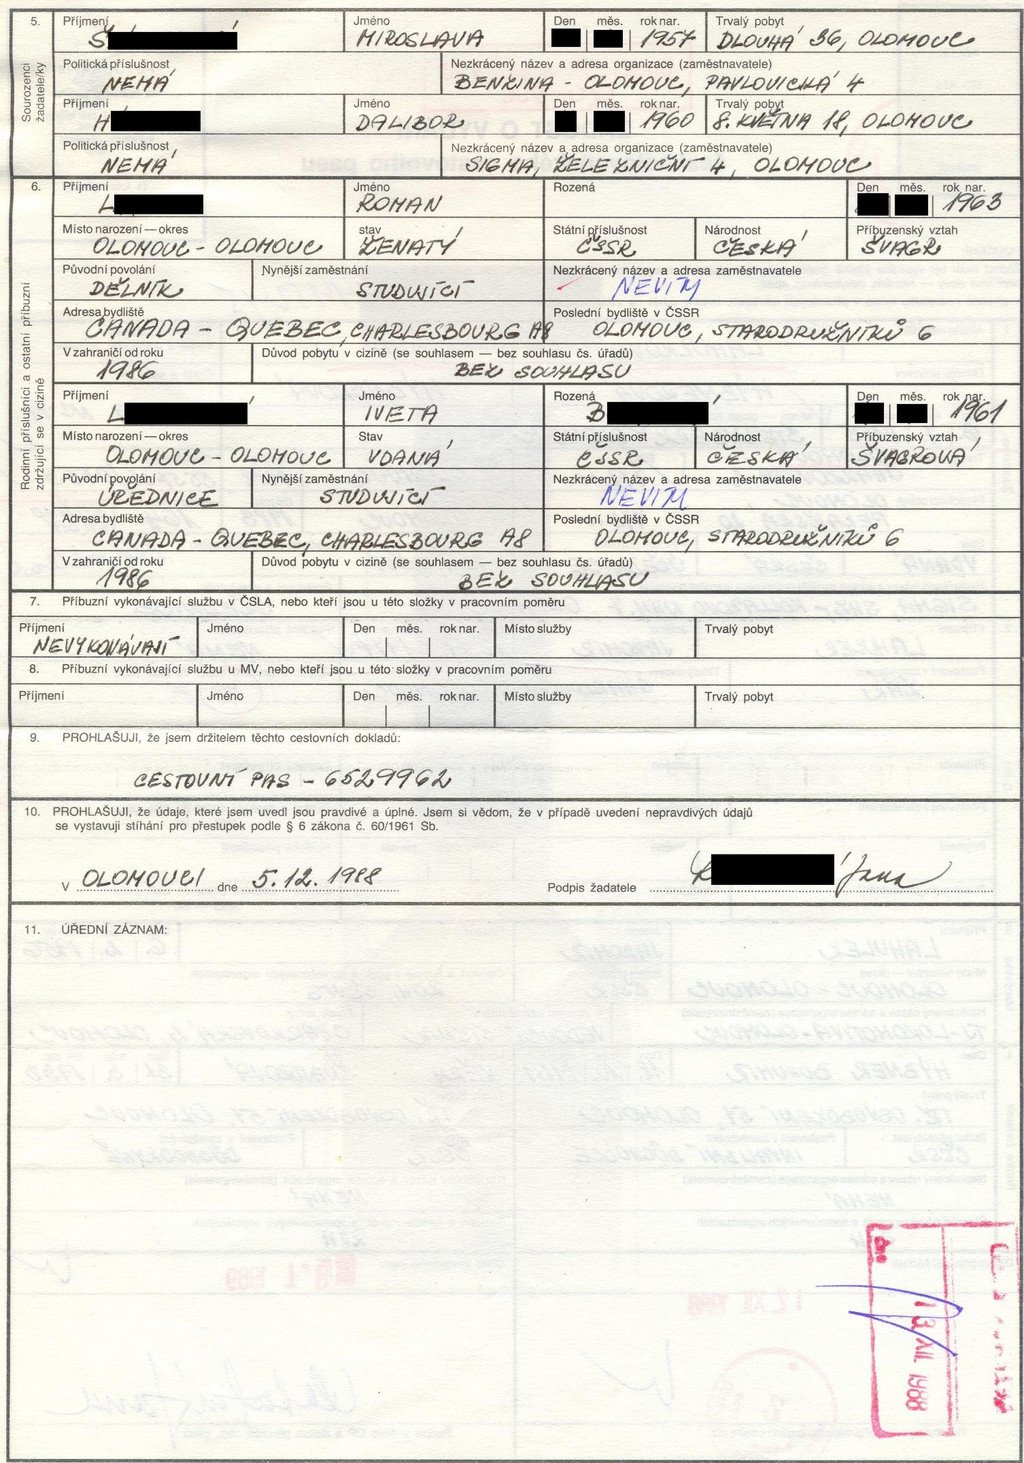 5. Příjmení Jméno Den měs. rok nar. Trvalý pobyt
Š MIROSLAVA 1957 DLOUHÁ 36, OLOMOUC
Sourozenci žadatele/ky
Politická příslušnost Nezkrácený název a adresa organizace (zaměstnavatele)
NEMÁ BENZINA - OLOMOUC, PAVLOVICKÁ 4
Příjmení Jméno Den měs. rok nar. Trvalý pobyt
H DALIBOR 1960 8. KVĚTNA 18, OLOMOUC
Politická příslušnost Nezkrácený název a adresa organizace (zaměstnavatele)
NEMÁ SIGMA, ŽELEZNIČNÍ 4, OLOMOUC
6. Příjmení Jméno Rozená Den měs. rok nar.
L ROMAN 1963
Rodinní příslušníci a ostatní příbuzní zdržující se v cizině
Místo narození — okres stav Státní příslušnost Národnost Příbuzenský vztah
OLOMOUC - OLOMOUC ŽENATÝ ČSSR ČESKÁ ŠVAGR
Původní povolání Nynější zaměstnání Nezkrácený název a adresa zaměstnavatele
DĚLNÍK STUDUJÍCÍ NEVÍM
Adresa bydliště Poslední bydliště v ČSSR
CANADA - QUEBEC, CHARLESBOURG A8 OLOMOUC, STARODRUŽNÍKŮ 6
V zahraničí od roku Důvod pobytu v cizině (se souhlasem — bez souhlasu čs. úřadů)
1986 BEZ SOUHLASU
Příjmení Jméno Rozená Den měs. rok nar.
L IVETA B 1961
Místo narození — okres Stav Státní příslušnost Národnost Příbuzenský vztah
OLOMOUC - OLOMOUC VDANÁ ČSSR ČESKÁ ŠVAGROVÁ
Původní povolání Nynější zaměstnání Nezkrácený název a adresa zaměstnavatele
ÚŘEDNICE STUDUJÍCÍ NEVÍM
Adresa bydliště Poslední bydliště v ČSSR
CANADA - QUEBEC, CHARLESBOURG A8 OLOMOUC, STARODRUŽNÍKŮ 6
V zahraničí od roku Důvod pobytu v cizině (se souhlasem — bez souhlasu čs. úřadů)
1986 BEZ SOUHLASU
7. Příbuzní vykonávající službu v ČSLA, nebo kteří jsou u této složky v pracovním poměru
Příjmení Jméno Den měs. rok nar. Místo služby Trvalý pobyt
NEVYKONÁVAJÍ
8. Příbuzní vykonávající službu u MV, nebo kteří jsou u této složky v pracovním poměru
Příjmení Jméno Den měs. rok nar. Místo služby Trvalý pobyt
9. PROHLAŠUJI, že jsem držitelem těchto cestovních dokladů:
CESTOVNÍ PAS - 6529962
10. PROHLAŠUJI, že údaje, které jsem uvedl jsou pravdivé a úplné. Jsem si vědom, že v případě uvedení nepravdivých údajů
se vystavuji stíhání pro přestupek podle § 6 zákona č. 60/1961 Sb.
V OLOMOUCI dne 5.12.1988 Podpis žadatele Jana
11. ÚŘEDNÍ ZÁZNAM:
13. XII. 1988